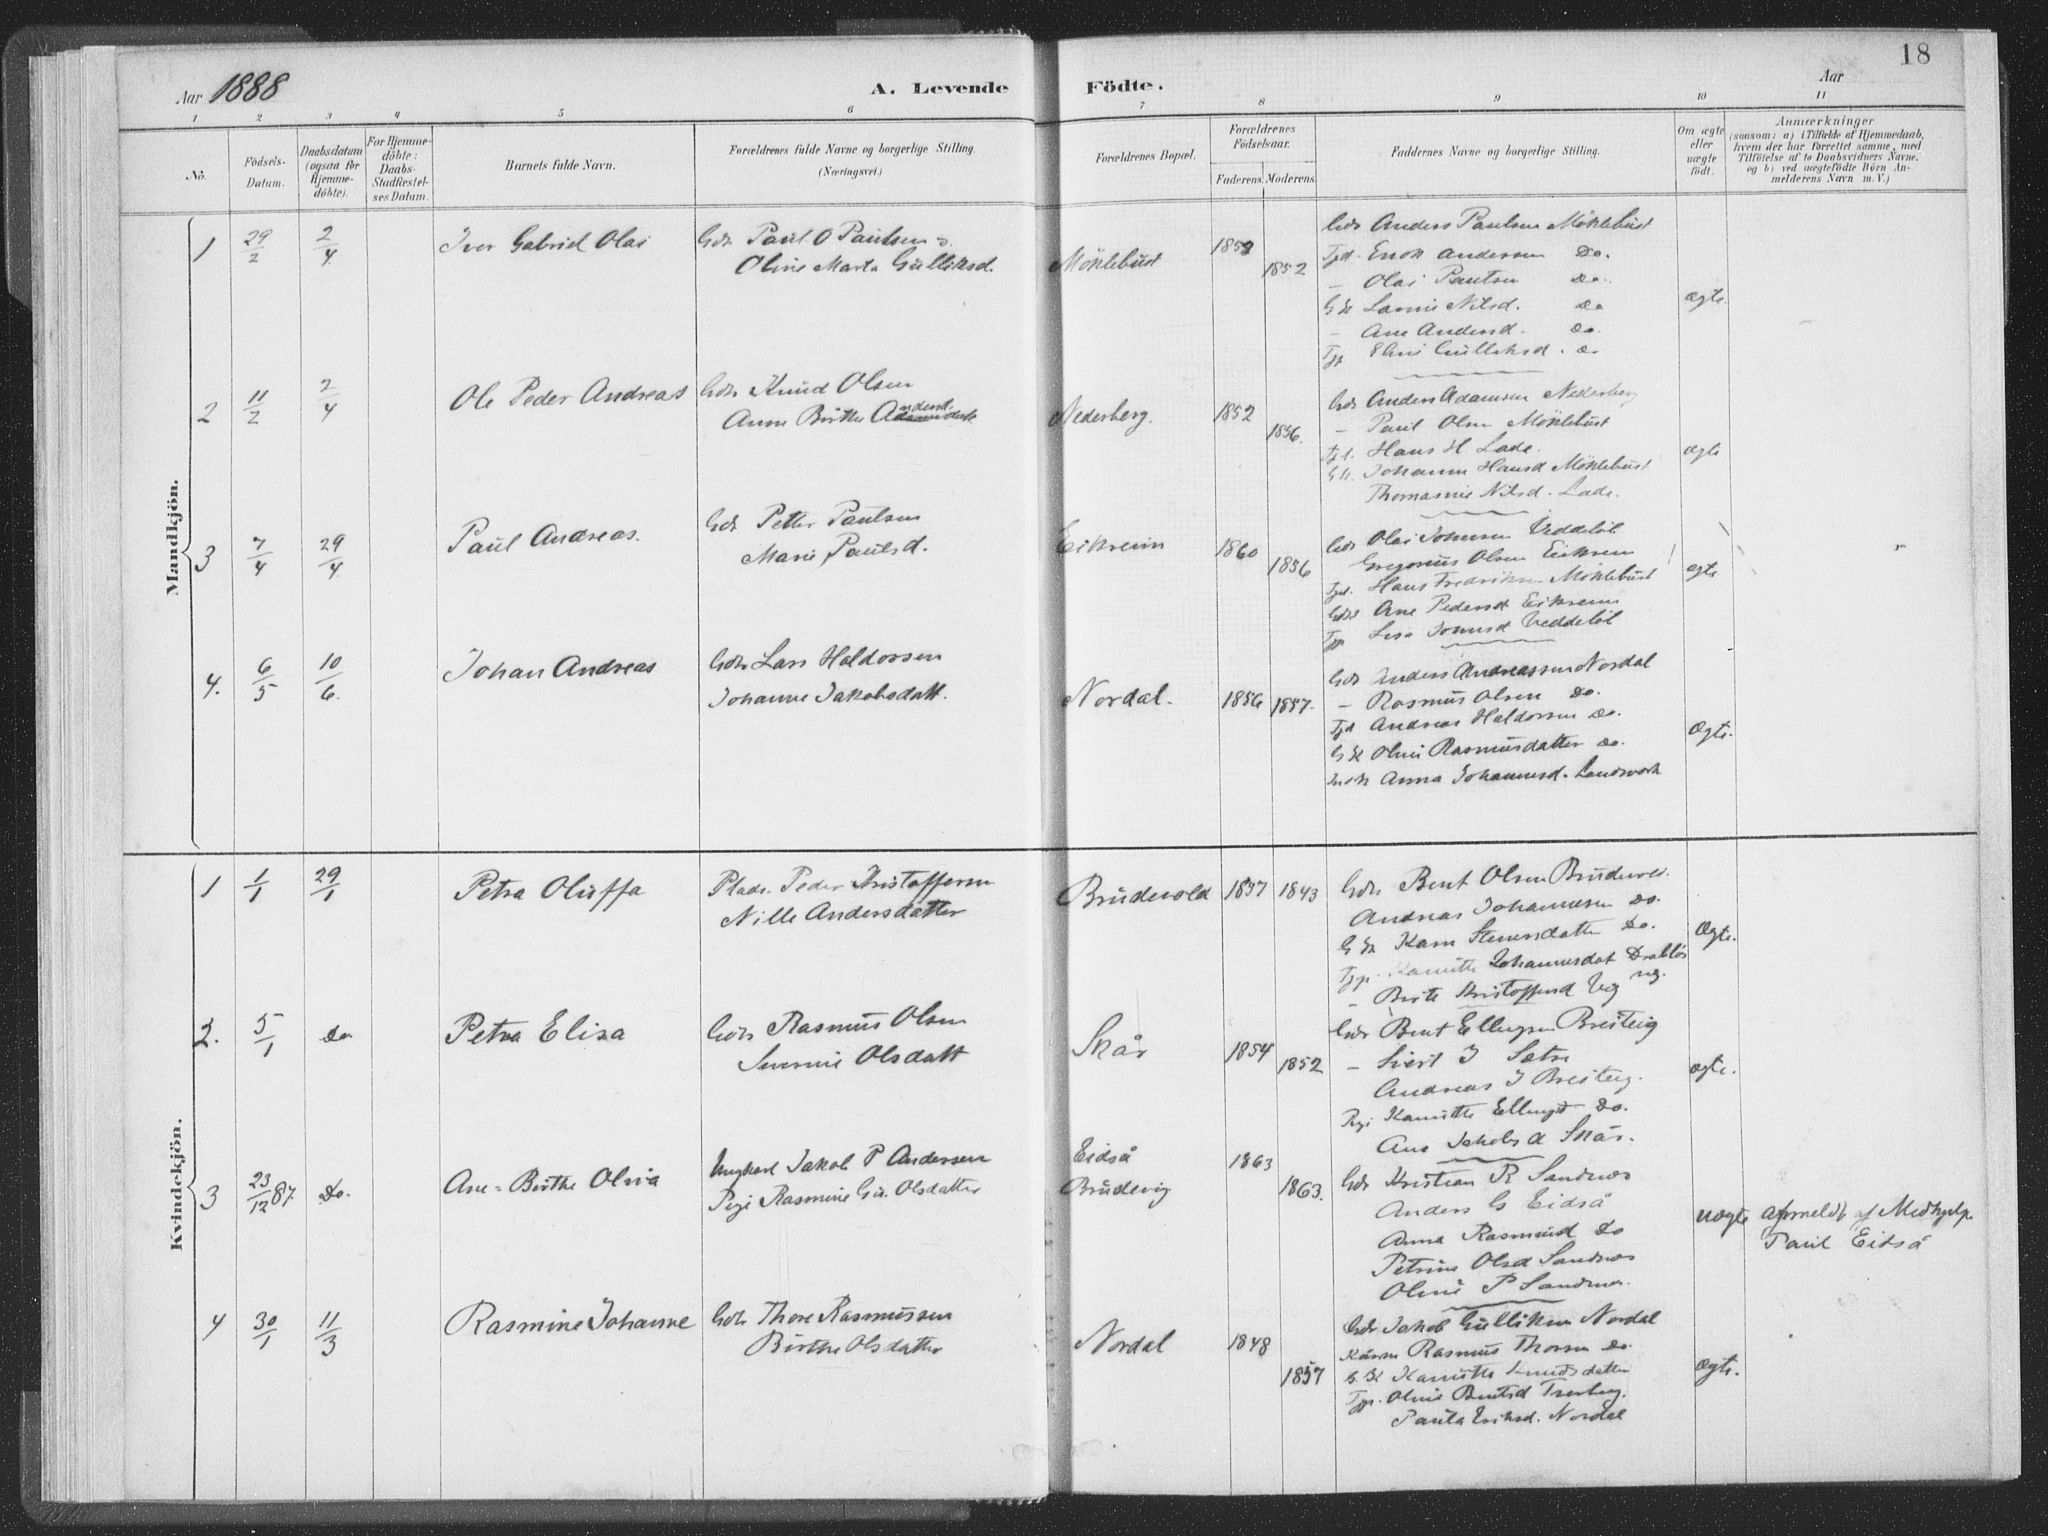 18
Aar 1888
A. Levende Födte.
Aar
1 2 3 4 5 6 7 8 9 10 11
No.
Födsels-Datum.
Daabsdatum (ogsaa for Hjemme-döbte).
For Hjemme-döbte: Daabs-Stadfestel-ses Datum.
Barnets fulde Navn.
Forældrenes fulde Navne og borgerlige Stilling.
(Næringsvei.)
Forældrenes Bopæl.
Forældrenes Födselsaar.
Faderens. Moderens.
Faddernes Navne og borgerlige Stilling.
Om ægte eller uægte födt.
Anmærkninger
(saasom: a) i Tilfælde af Hjemmedaab,
hvem der har forrettet samme, med
Tilföielse af to Daabsvidners Navne,
og b) ved uægtefödte Börn An-
melderens Navn m. V.)
Mandkjön.
1 29/2 2/4 Iver Gabriel Olai
Gdr Paul O Paulsen
Oline Marta Gulliksd.
Möklebust 1852
Gdr Anders Paulsen Möklebust
Tjd. Enok Andersen Do.
– Olai Paulsen Do.
Nilsd. Do
– Ane Andersd. Do.
Gulliksd.
ægte
2 11/2 2/4 Ole Peder Andreas
Gdr Knud Olsen
Anne Birthe
Nederberg. 1852 1856.
Gdr Anders Adamsen Nederberg
– Paul Olsen Möklebust
Hans H Lade.
Johanne Hansd Möklebust
Thomasine Nilsd. Lade.
ægte
3 7/4 29/4 Paul Andreas.
Gdr Petter Paulsen
Marie Paulsd.
Eikrem 1860 1856
Gdr Olai Veddeböl
Gregorius Olsen Eikrem
Tjd. Hans Fredriksen Möklebust
Ane Pedersd Eikrem
Veddeböl
ægte
4. 6/5 10/6. Johan Andreas
Gdr Lars Haldorsen
Johanne Jakobsdatt.
Nordal. 1856 1857.
Gdr Anders Andreassen Nordal
– Rasmus Olsen Do.
Tjd Andreas Haldorsen Do.
Oline Rasmusdatter Do.
Anna Johannesd. Landmark
Ægte.
Kvindekjön.
1 1/1 29/1 Petra Oluffa
Plads. Peder Kristoffersen
Nille Andersdatter
Brudevold 1857 1843
Gdr Bent Olsen Brudevold.
Andreas Johannesen Do.
Do.
Johannesdat Drablös
– Birte Kristoffersd Vig
Ægte.
2. 5/1 Do Petra Elisa
Gdr Rasmus Olsen
Severine Olsdatt
Skår 1854 1852
Gdr Bent Ellingsen Breiteig
– Sivert J Sætre
Andreas J Breiteig.
Pigi Ellingsd Do.
Ane Jakobsd Skår.
ægte.
3 23/12 87. Do. Ane-Birthe Olivia
Ungkarl Jakob P Andersen
Pigi Rasmine Gu. Olsdatter
Eidså
Brudevig
1863 1863.
Gdr Kristian R Sandnæs
Anders G Eidså
Anna Rasmusd Do
Petrine Olsd Sandnæs
Oline P Sandnes.
uægte
Anmeldt af Medhjelp.
Paul Eidså
4 30/1 11/3 Rasmine Johanne
Gdr Thore Rasmussen
Birthe Olsdatter
Nordal 1848 1857
Gdr Jakob Gulliksen Nordal
Rasmus Thorsen Do.
Knudsdatter
Oline Bentsd
Paula Eriksd. Nordal
Ægte.